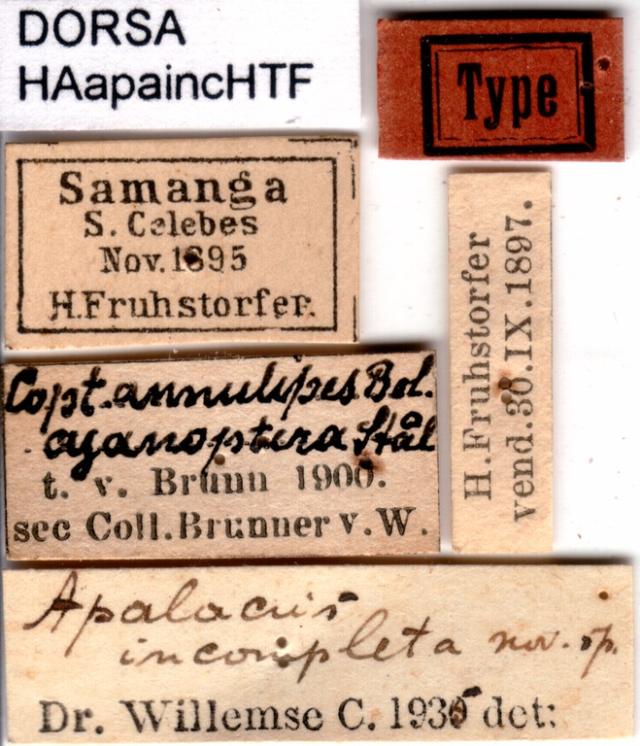 DORSA
HAapaincHTF
Type
Samanga
S. Celebes
Nov. 1895
H. Fruhstorfer.
H. Fruhstorfer
vend. 30. IX. 1897.
Copt. annulipes Bol.
cyanoptera Stål
t. v. Brunn 1900.
sec Coll. Brunner v. W.
Apalacris
incompleta nov. sp.
Dr. Willemse C. 1935 det: